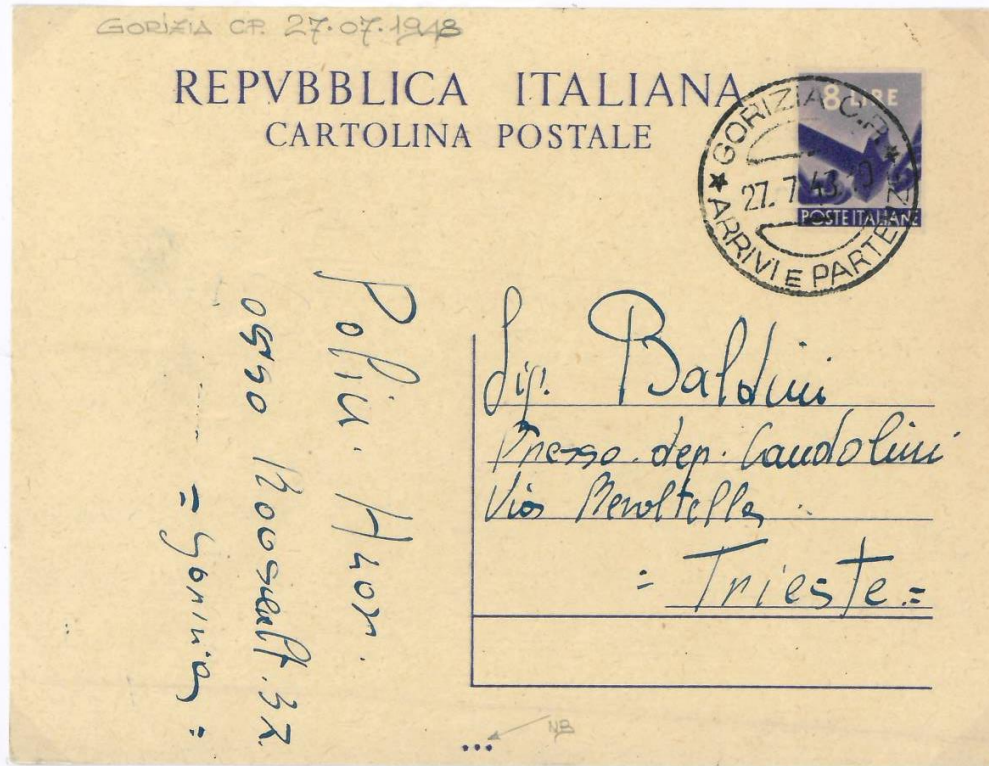 GORIZIA CP. 27.07.1948
REPVBBLICA ITALIANA
CARTOLINA POSTALE
8 LIRE
POSTE ITALIANE
GORIZIA C.P.
27.7.48.10
ARRIVI E PARTENZE
Sig. Baldini
Presso dep. Candolini
Via Revoltella
= Trieste =
NB
Roosevelt. 37.
= Gorizia =